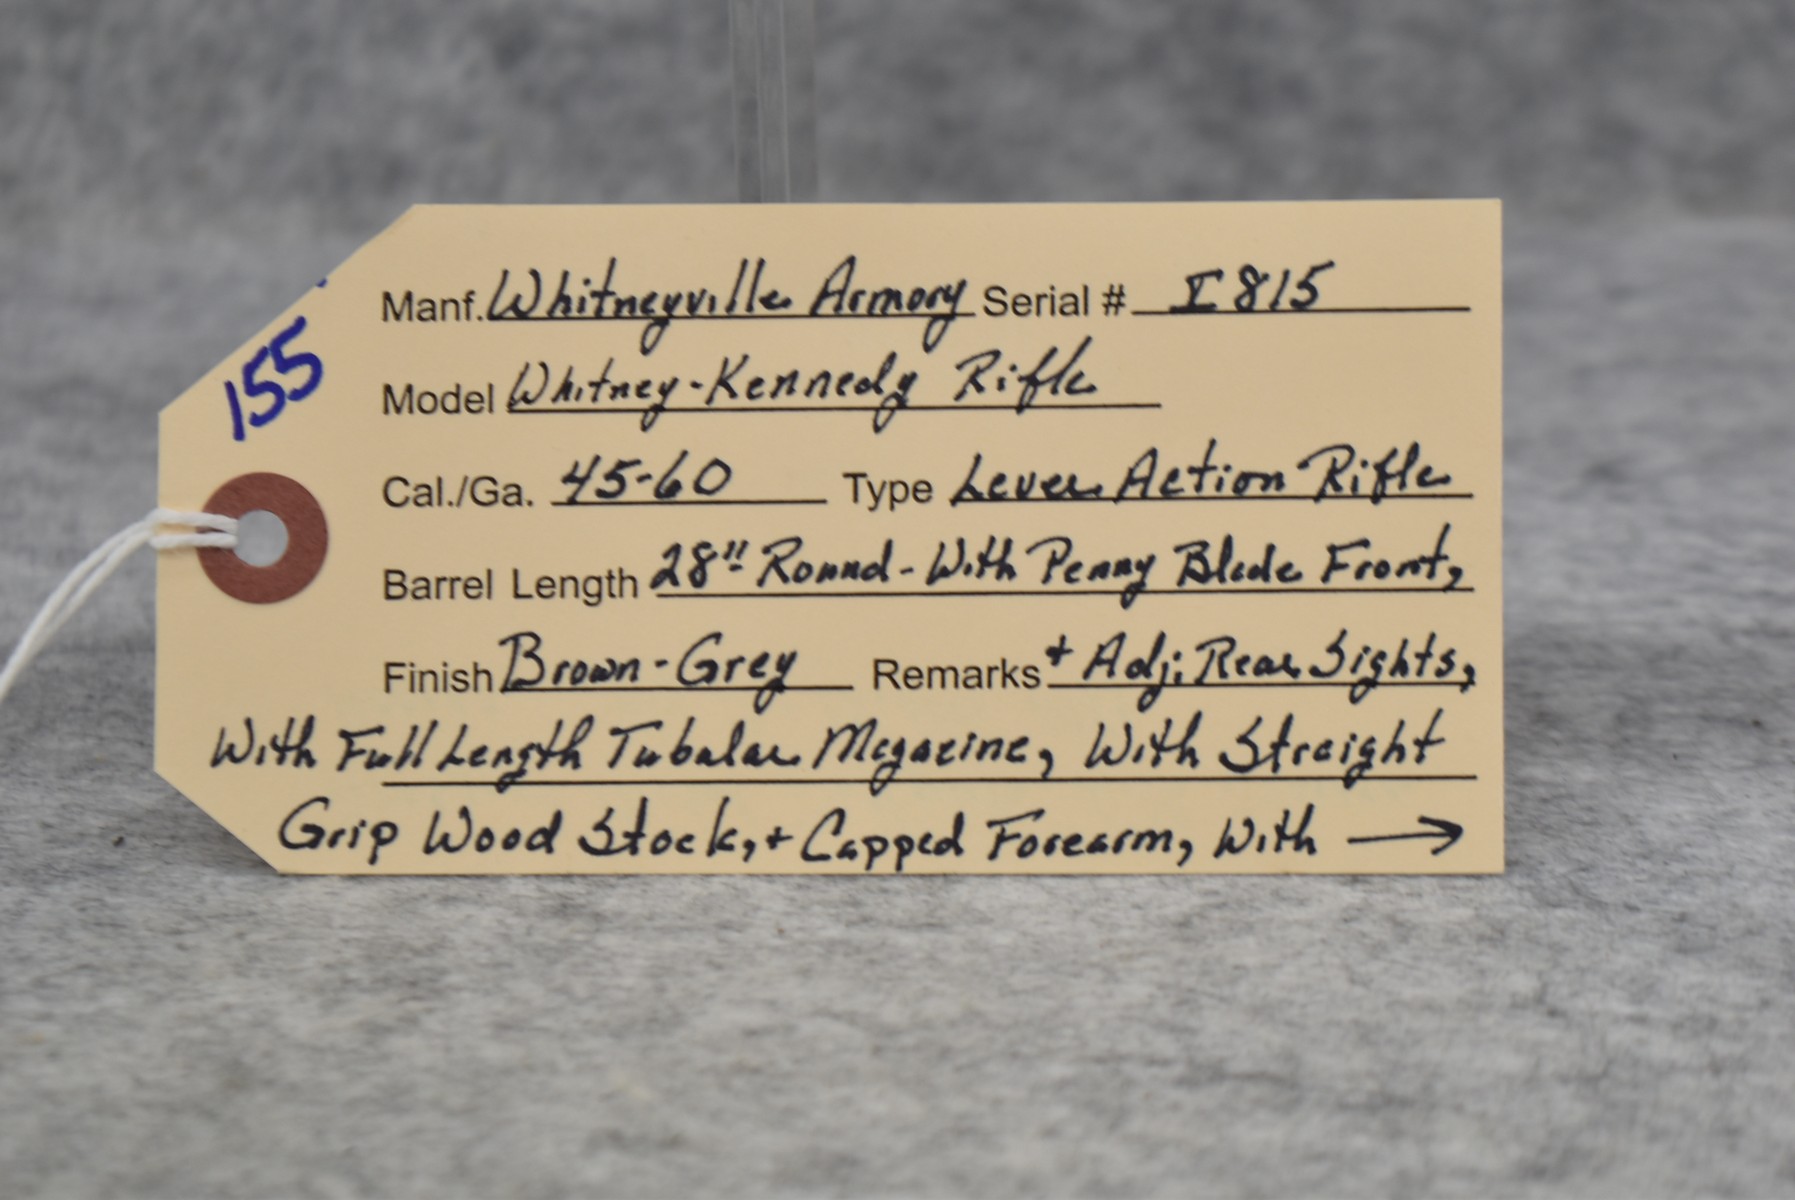 155
Manf. Whitneyville Armory Serial # I815
Model Whitney-Kennedy Rifle
Cal./Ga. 45-60 Type Lever Action Rifle
Barrel Length 28" Round - With Penny Blade Front,
Finish Brown-Grey Remarks + Adj; Rear Sights,
With Full Length Tubular Magazine, With Straight
Grip Wood Stock, + Capped Forearm, With →